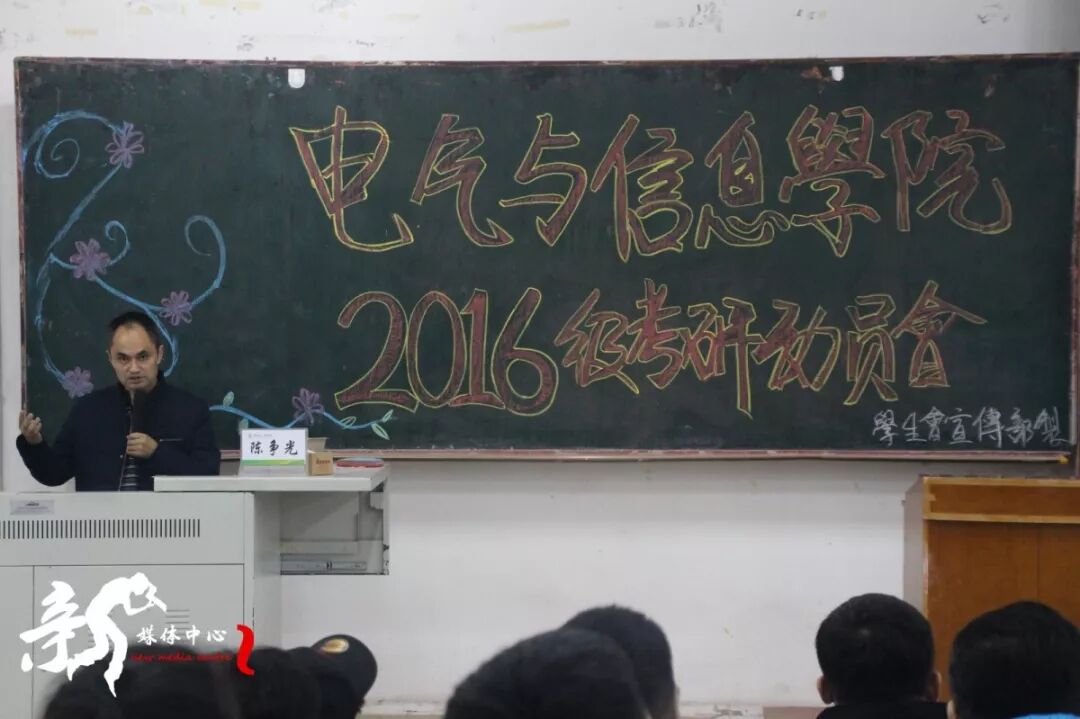 电气与信息學院
2016级考研动员會
學生會宣傳部製
陈争光
新
媒体中心
new media centre